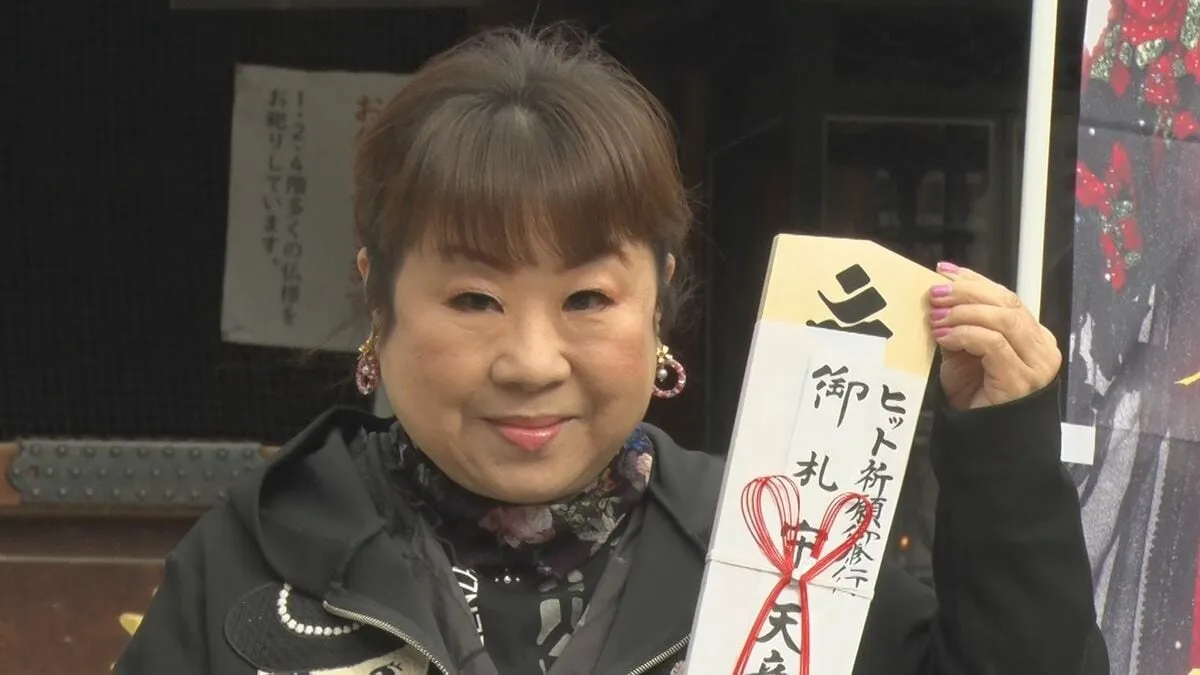 お
1・2・4階多くの仏様を
お祀りしています。
ヒット祈願
修行
御札
天童